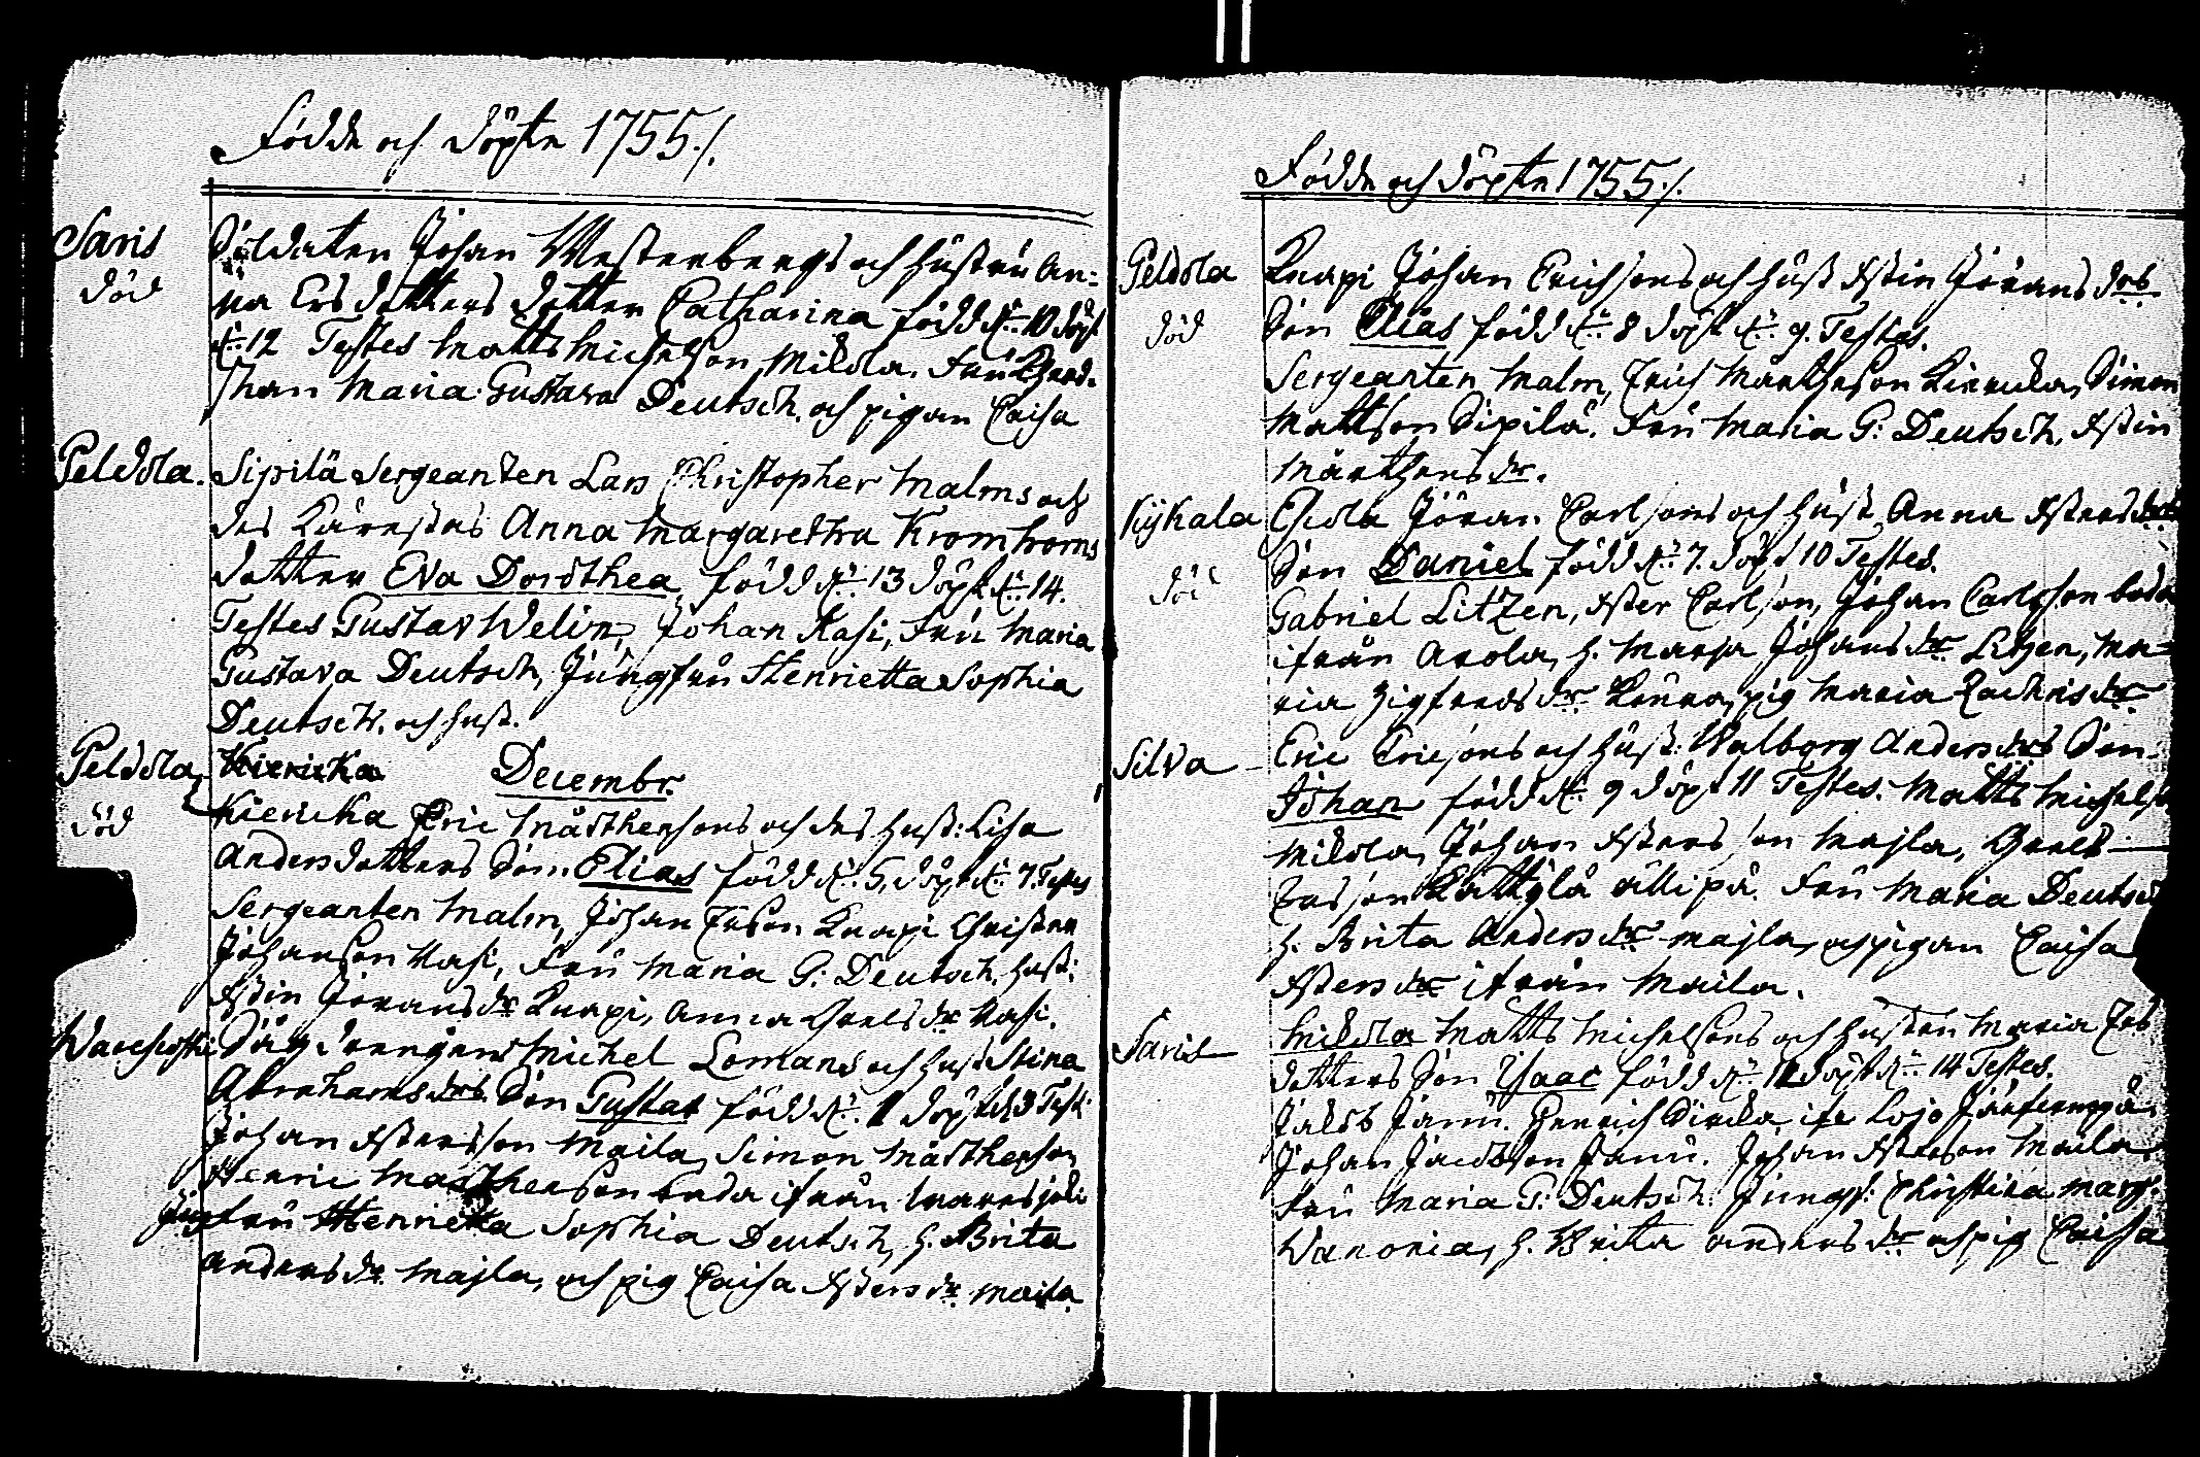 Födde och döpte 1755./.
Saris
död
Soldaten Johan Westerbergs och hustru An=
na Ers dotters dotter Catharina född d. 10 döpt
d. 12 Testes Matts Michelson Mikola. Fru
Maria Gustava Deutsch och pigan Caisa
Peldola.
Sipilä Sergeanten Lars Christopher Malms och
des Kärestas Anna Margaretha Kromhorns
dotter Eva Dorothea född d. 13 döpt d. 14.
Testes Gustav Welin, Johan Kasi, Fru Maria
Gustava Deutsch, Jungfru Henrietta Sophia
Deutsch. och hust.
Peldola
död
Kiericka
Decembr.
Kiericka Eric Mårthensons och des hust: Lisa
Andersdotters Son. Elias född d. 5. döpt d. 7. Testes
Sergeanten Malm, Johan Erson Knapi Christer
Johanson Kasi, Fru Maria G: Deutsch. hust:
Jörans dr Knapi, Anna dr Kasi.
Michel Lomans och hust Stina
Abrahams drs Son Gustav född d. 1 döpt d. 3 Test:
Johan Maila, Simon Mårthenson
Henric Mårthenson bada ifrån
Jungfru Henrietta Sophia Deutsch, h. Brita
Anders dr. Majla, och pig Caisa dr Maila
Födde och döpte 1755./.
Peldola
död
Knapi Johan Erichsons och hust Jörans drs
Son Elias född d. 8 döpt d. 9. Testes.
Sergeanten Malm, Erich Mårthenson Kiericka, Simon
Mattson Sipilä. Fru Maria G: Deutsch,
Mårthens dr.
Kyhala
död
Jöran Carlsons och hust Anna
Son Daniel född d. 7. döpt 10 Testes.
Gabriel Litzen, Carlson, Johan Carlsson bada
ifrån Arola, h. Marja Johans dr Litzen, Ma=
ria Zigfreds dr pig Maria Zachris dr
Silva
Eric Ericsons och hust: Walborg Anders drs Son
Johan född d. 9 döpt 11 Testes. Matts Michelson
Mikola, Johan Majla,
Fru Maria Deutsch
h. Brita Anders dr Majla, och pigan Caisa
dr ifrån Maila.
Saris
Mikola Matts Michelsons och hustru Maria Ers
dotters Son Isaac född d. 11 döpt d. 14 Testes.
Jakob Janu. Henrich ifr Lojo
Johan Jacobson Janu. Johan Maila
Fru Maria G: Deutsch. Jungf: Christina Marg:
Wanoria, h. Brita Anders dr och pig Caisa